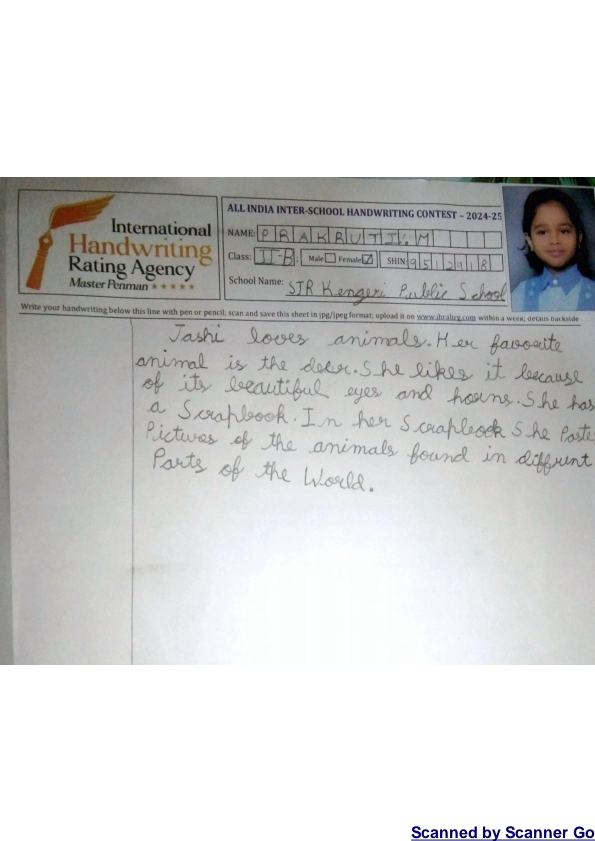 International
Handwriting
Rating Agency
Master Penman ★★★★★
ALL INDIA INTER-SCHOOL HANDWRITING CONTEST – 2024-25
NAME: PRAKRUTI.M
Class: II-B Male Female ✓ SHIN: 9512918
School Name: SJR Kengeri Public School
Write your handwriting below this line with pen or pencil; scan and save this sheet in jpg/jpeg format; upload it on www.ihrabrg.com within a week; details backside
Tashi loves animals. Her favourite
animal is the deer. She likes it because
of its beautiful eyes and horns. She has
a Scrapbook. In her Scrapbook She Paste
Pictures of the animals found in diffrent
Parts of the World.
Scanned by Scanner Go